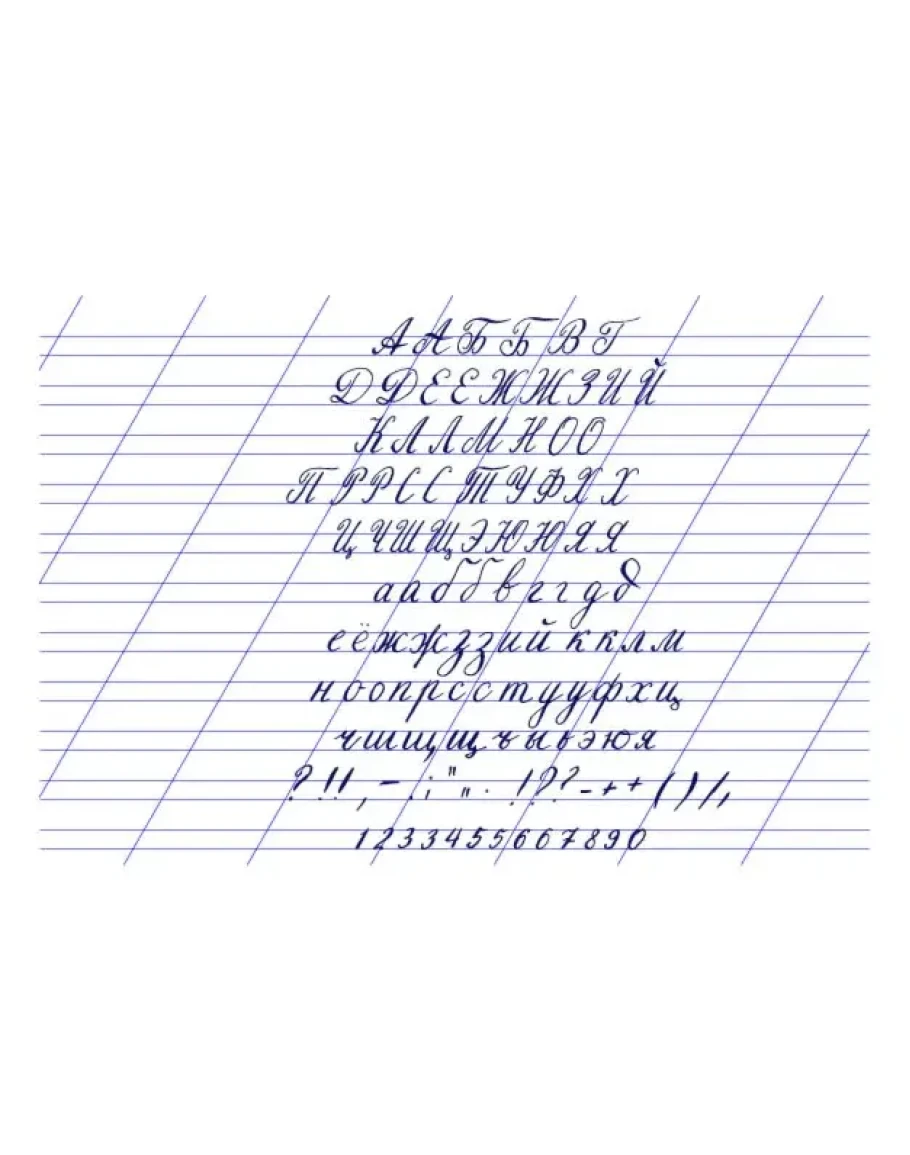 А А Б Б В Г
Д Д Е Е Ж Ж З И Й
К Л Л М Н О О
П Р Р С С Т У Ф Х Х
Ц Ч Ш Щ Э Ю Ю Я Я
а а б б в г г д д
е ё ж ж з з и й к к л м
н о о п р с с т у у ф х ц
ч ш щ щ ъ ы ь э ю я
? ! ! , - . ; " „ . ! ? ? - + + ( ) / ,
1 2 3 3 4 5 5 6 6 7 8 9 0